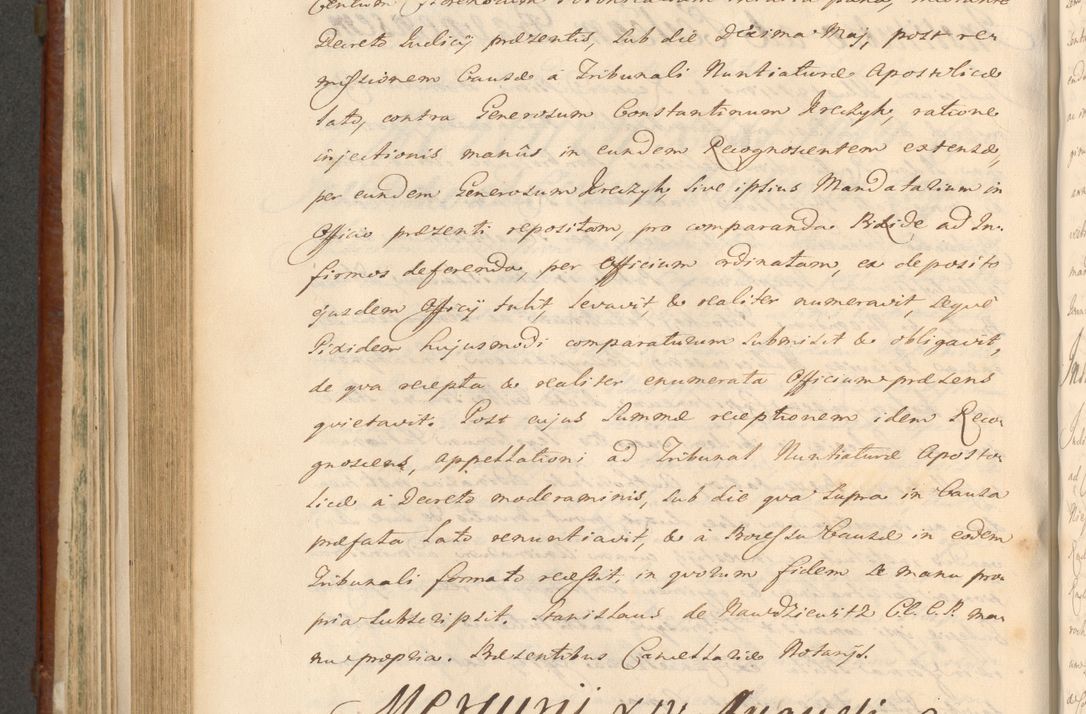 Centum Florenorum
Decreto Iudicij præsentis, sub die decima Maj, post re-
missionem Causæ a Tribunali Nuntiaturæ Apostolicæ
lato, contra Generosum Constantinum Kreczyk, ratione
injectionis manûs in eundem Recognoscentem extensæ,
per eundem Generosum Kreczyk, sive ipsius Mandatarium in
Officio præsenti repositam, pro comparanda Pixide ad In-
firmos deferenda, per Officium ordinatam, ex deposito
ejusdem Officij tulit, levavit & realiter numeravit, seque
Pixidem hujusmodi comparaturum submisit & obligavit,
de qva recepta & realiter enumerata Officium præsens
qvietavit. Post cujus Summæ receptionem idem Reco-
gnoscens, appellationi ad Tribunal Nuntiaturæ Aposto-
licæ a Decreto moderaminis, sub die qva supra in Causa
præfata lato renuntiavit, & a Processu Causæ in eodem
Tribunali formato recessit, in qvorum fidem se manu pro-
pria subscripsit. Stanislaus de Nawdziewitz C. C. P. ma-
nu propria. Præsentibus Cancellariæ Notarijs.
Mercurij XIV Augusti